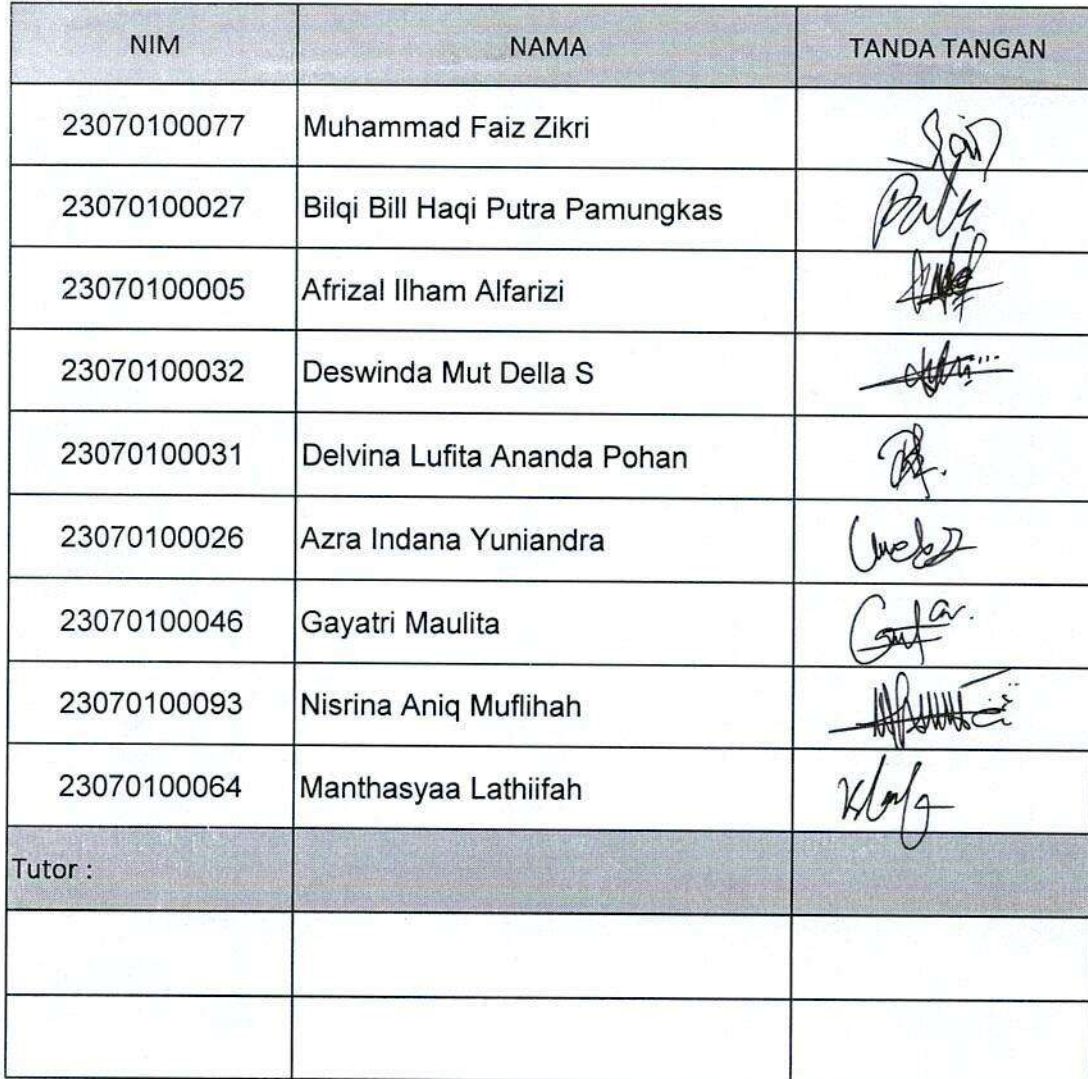 NIM NAMA TANDA TANGAN
23070100077 Muhammad Faiz Zikri
23070100027 Bilqi Bill Haqi Putra Pamungkas
23070100005 Afrizal Ilham Alfarizi
23070100032 Deswinda Mut Della S
23070100031 Delvina Lufita Ananda Pohan
23070100026 Azra Indana Yuniandra
23070100046 Gayatri Maulita
23070100093 Nisrina Aniq Muflihah
23070100064 Manthasyaa Lathiifah
Tutor :